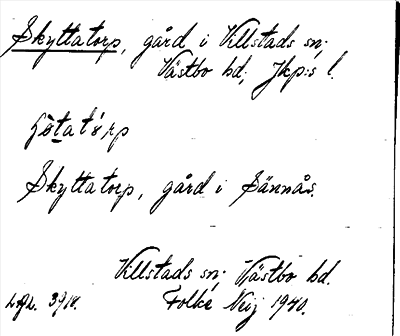 Skyttatorp, gård i Villstads sn;
Västbo hd; Jkp:s l.
Skyttatorp, gård i Sännås.
Villstads sn; Västbo hd.
Folke 1940.